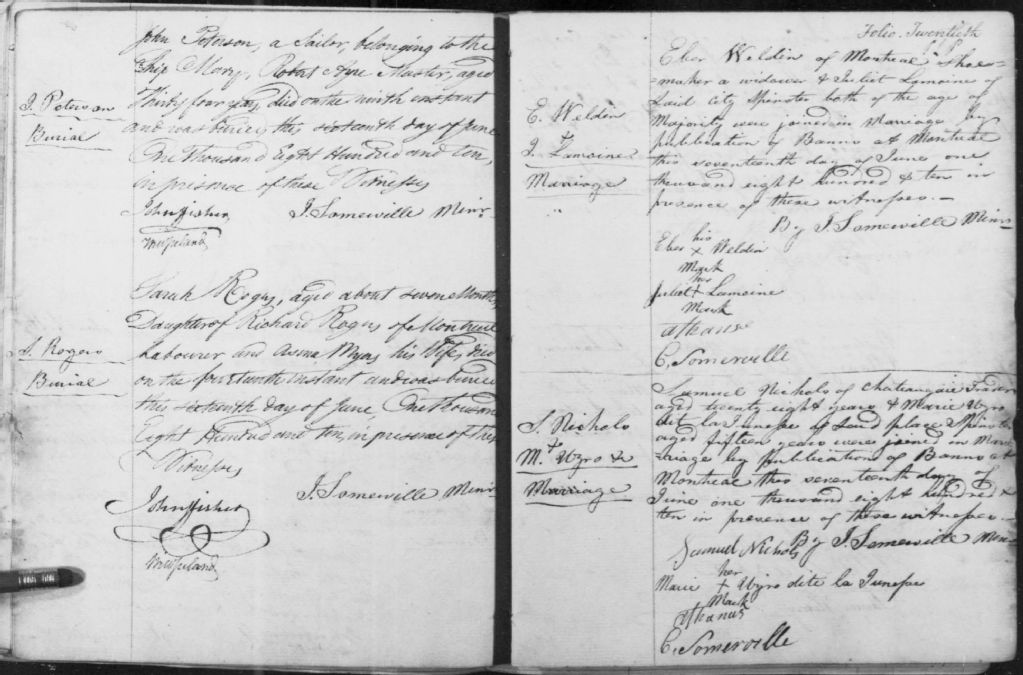 J. Peterson
Burial
John Peterson, a Sailor, belonging to the
Ship Mary, Robert Ayre Master, aged
Thirty four years, died on the ninth instant
and was buried this sixteenth day of June
One Thousand Eight Hundred and ten,
in presence of these Witnesses
John Fisher J. Somerville Minr
S. Rogers
Burial
Sarah Rogers, aged about seven Months,
Daughter of Richard Rogers of Montreal
Labourer and his Wife, died
on the fourteenth instant and was buried
this sixteenth day of June, One Thousand
Eight Hundred and ten, in presence of these
Witnesses,
John Fisher J. Somerville Minr
Folio. Twentieth
E. Weldin
&
J. Lamoine
Marriage
Eber Weldin of Montreal Shoe=
=maker a widower & Juliet Lamoine of
Said City Spinster both of the age of
Majority were joined in Marriage by
publication of Banns at Montreal
this seventeenth day of June one
thousand eight hundred & ten in
presence of these witnesses.—
By J. Somerville Minr
Eber his x Weldin
Mark
Juliet her x Lamoine
Mark
C. Somerville
S. Nichols
&
M. Uzro &
Marriage
Samuel Nichols of Chateaugaie Trader
aged twenty eight years & Marie Uzro
dit la Junesse of Said place Spinster
aged fifteen years were joined in Marr
=riage by publications of Banns at
Montreal this seventeenth day of
June one thousand eight hundred &
ten in presence of these witnesses.—
By J. Somerville Minr
Samuel Nichols
Marie her x Uzro dite la Junesse
Mark
C. Somerville